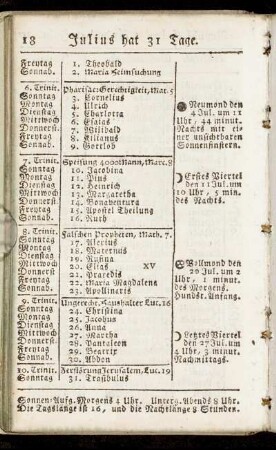 18 Julius hat 31 Tage.
Freytag 1. Theobald
Sonnab. 2. Maria Heimsuchung
6. Trinit. Pharisäer-Gerechtigkeit, Mat. 5
Sonntag 3. Cornelius
Montag 4. Ulrich
Dienstag 5. Charlotta
Mittwoch 6. Esaias
Donnerst. 7. Wilibald
Freytag 8. Kilianus
Sonnab. 9.
Neumond den
4 Jul. um 11
Uhr, 44 minut.
Nachts mit ei-
ner unsichtbaren
Sonnenfinstern.
7. Trinit. Speisung 4000 Mann, Marc. 8
Sonntag 10. Jacobina
Montag 11. Pius
Dienstag 12. Heinrich
Mittwoch 13. Margaretha
Donnerst 14. Bonaventura
Freytag 15. Apostel Theilung
Sonnab. 16. Ruth
Erstes Viertel
den 11 Jul. um
10 Uhr, 5 min.
des Nachts.
8. Trinit. Falschen Propheten, Math. 7.
Sonntag 17. Alexius
Montag 18. Maternus
Dienstag 19. Rufina
Mittwoch 20. Elias XV
Donnerst 21. Praxedis
Freytag 22. Maria Magdalena
Sonnab. 23. Apollinaris
Vollmond den
20 Jul. um 2
Uhr, 1 minut.
des Morgens.
Hundst. Anfang.
9. Trinit. Ungerechte. Haushalter Luc. 16
Sonntag 24. Christina
Montag 25. Jacobus
Dienstag 26. Anna
Mittwoch 27. Martha
Donnerst 28. Pantaleon
Freytag 29. Beatrix
Sonnab. 30. Abdon
Letztes Viertel
den 27 Jul. um
4 Uhr, 3 minut.
Nachmittags.
10. Trinit. Zerstörung Jerusalem, Luc. 19
Sonntag 31. Trasibulus
Sonnen-Aufg. Morgens 4 Uhr. Unterg. Abends 8 Uhr.
Die Tagslänge ist 16, und die Nachtlänge 8 Stunden.